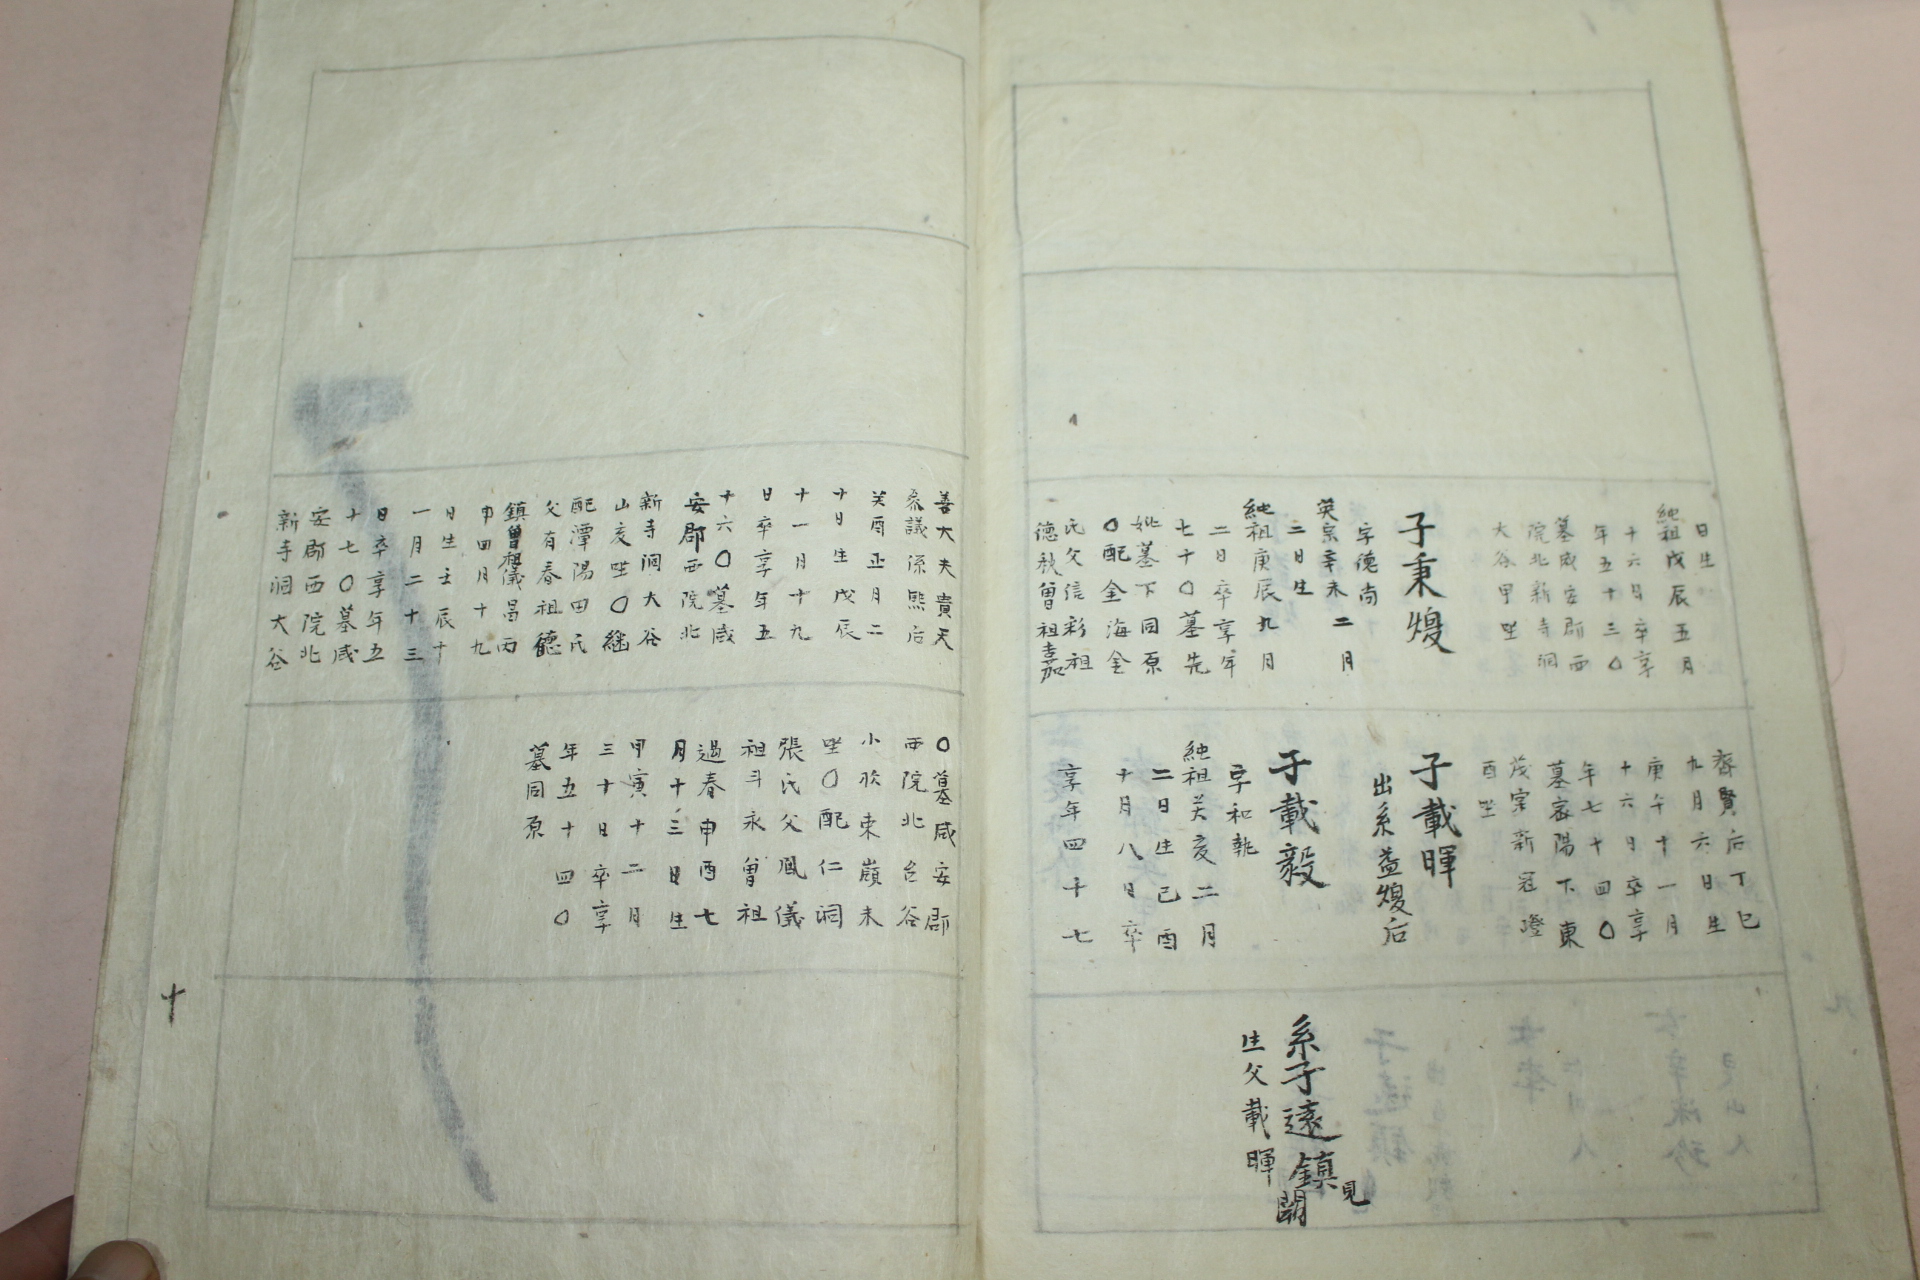 日生
純祖戊辰五月
十六日卒享
年五十三〇
墓咸安郡西
院北新寺洞
大谷甲坐
子秉煥
字德尚
英宗辛未二月
二日生
純祖庚辰九月
二日卒享年
七十〇墓先
妣墓下同原
〇配金海金
氏父信彩祖
德秋曾祖嘉
齊賢后丁巳
九月六日生
庚午十一月
十六日卒享
年七十四〇
墓密陽下東
茂宗新冠嶝
酉坐
子載暉
出系益煥后
子載毅
字和執
純祖癸亥二月
二日生己酉
十月八日卒
享年四十七
系子遠鎮
見
闕
生父載暉
善大夫貴天
叅議係熙后
癸酉正月二
十日生戊辰
十一月十九
日卒享年五
十六〇墓咸
安郡西院北
新寺洞大谷
山亥坐〇繼
配潭陽田氏
父有春祖德
鎮曾祖儀昌丙
申四月十九
日生壬辰十
一月二十三
日卒享年五
十七〇墓咸
安郡西院北
新寺洞大谷
〇墓咸安郡
西院北台谷
小欣来嶺未
坐〇配仁洞
張氏父鳳儀
祖斗永曾祖
過春申酉七
月十三日生
甲寅十二月
三十日卒享
年五十四〇
墓同原
十